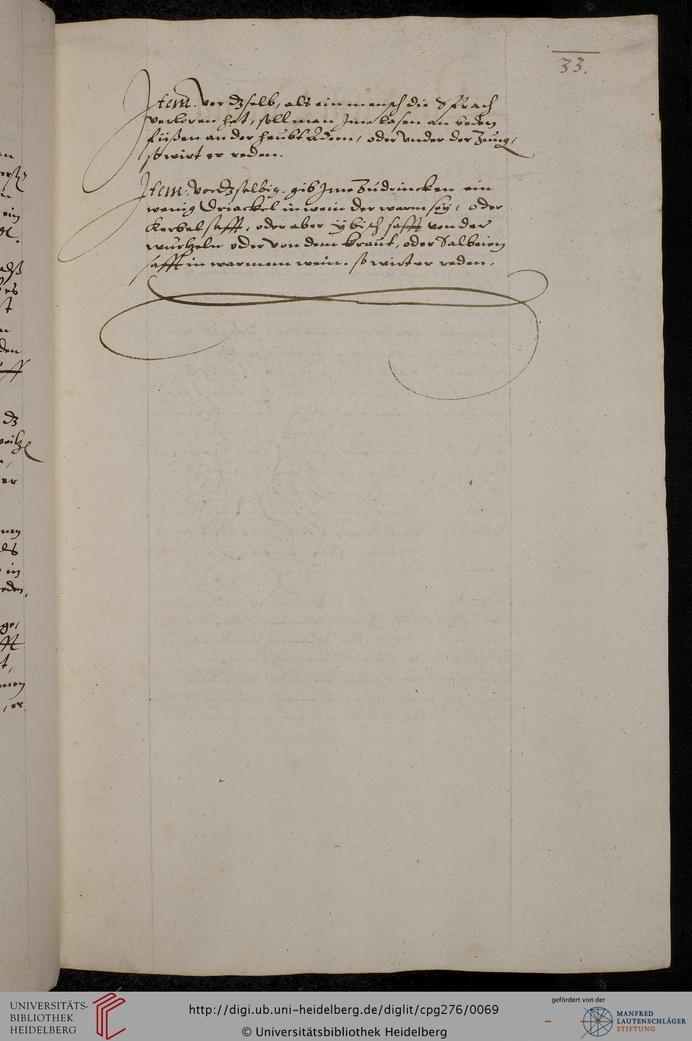 33.
Item. vor dz selb, als ein mensch die Sprach
verloren hat, soll man Jme lasen an beden
füßen an der heubt Adern, oder vnder der Zung,
so wirt er reden.
Item. vor dz selbig. gib Jme Zudrincken ein
wenig Driackel in wein der warm sey, oder
Kerbel safft, oder aber ybisch safft von der
wurtzeln oder von dem kraut, oder Salbeien
safft in warmem wein. so wirt er reden.
UNIVERSITÄTS-
BIBLIOTHEK
HEIDELBERG
http://digi.ub.uni-heidelberg.de/diglit/cpg276/0069
© Universitätsbibliothek Heidelberg
gefördert von der
MANFRED
LAUTENSCHLÄGER
STIFTUNG